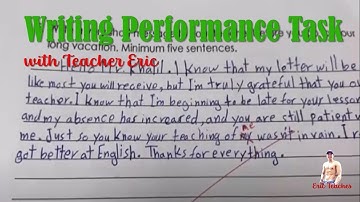 Writing Performance Task
long vacation. Minimum five sentences.
with Teacher Eric
Hello Mr. Khalil. I know that my letter will be
like most you will receive, but I'm truly grateful that you
teacher. I know that I'm beginning to be late for your lesson
and my absence has increased, and you are still patient
me. Just so you know your teaching of me wasn't in vain. I
got better at English. Thanks for everything.
Eric Teacher